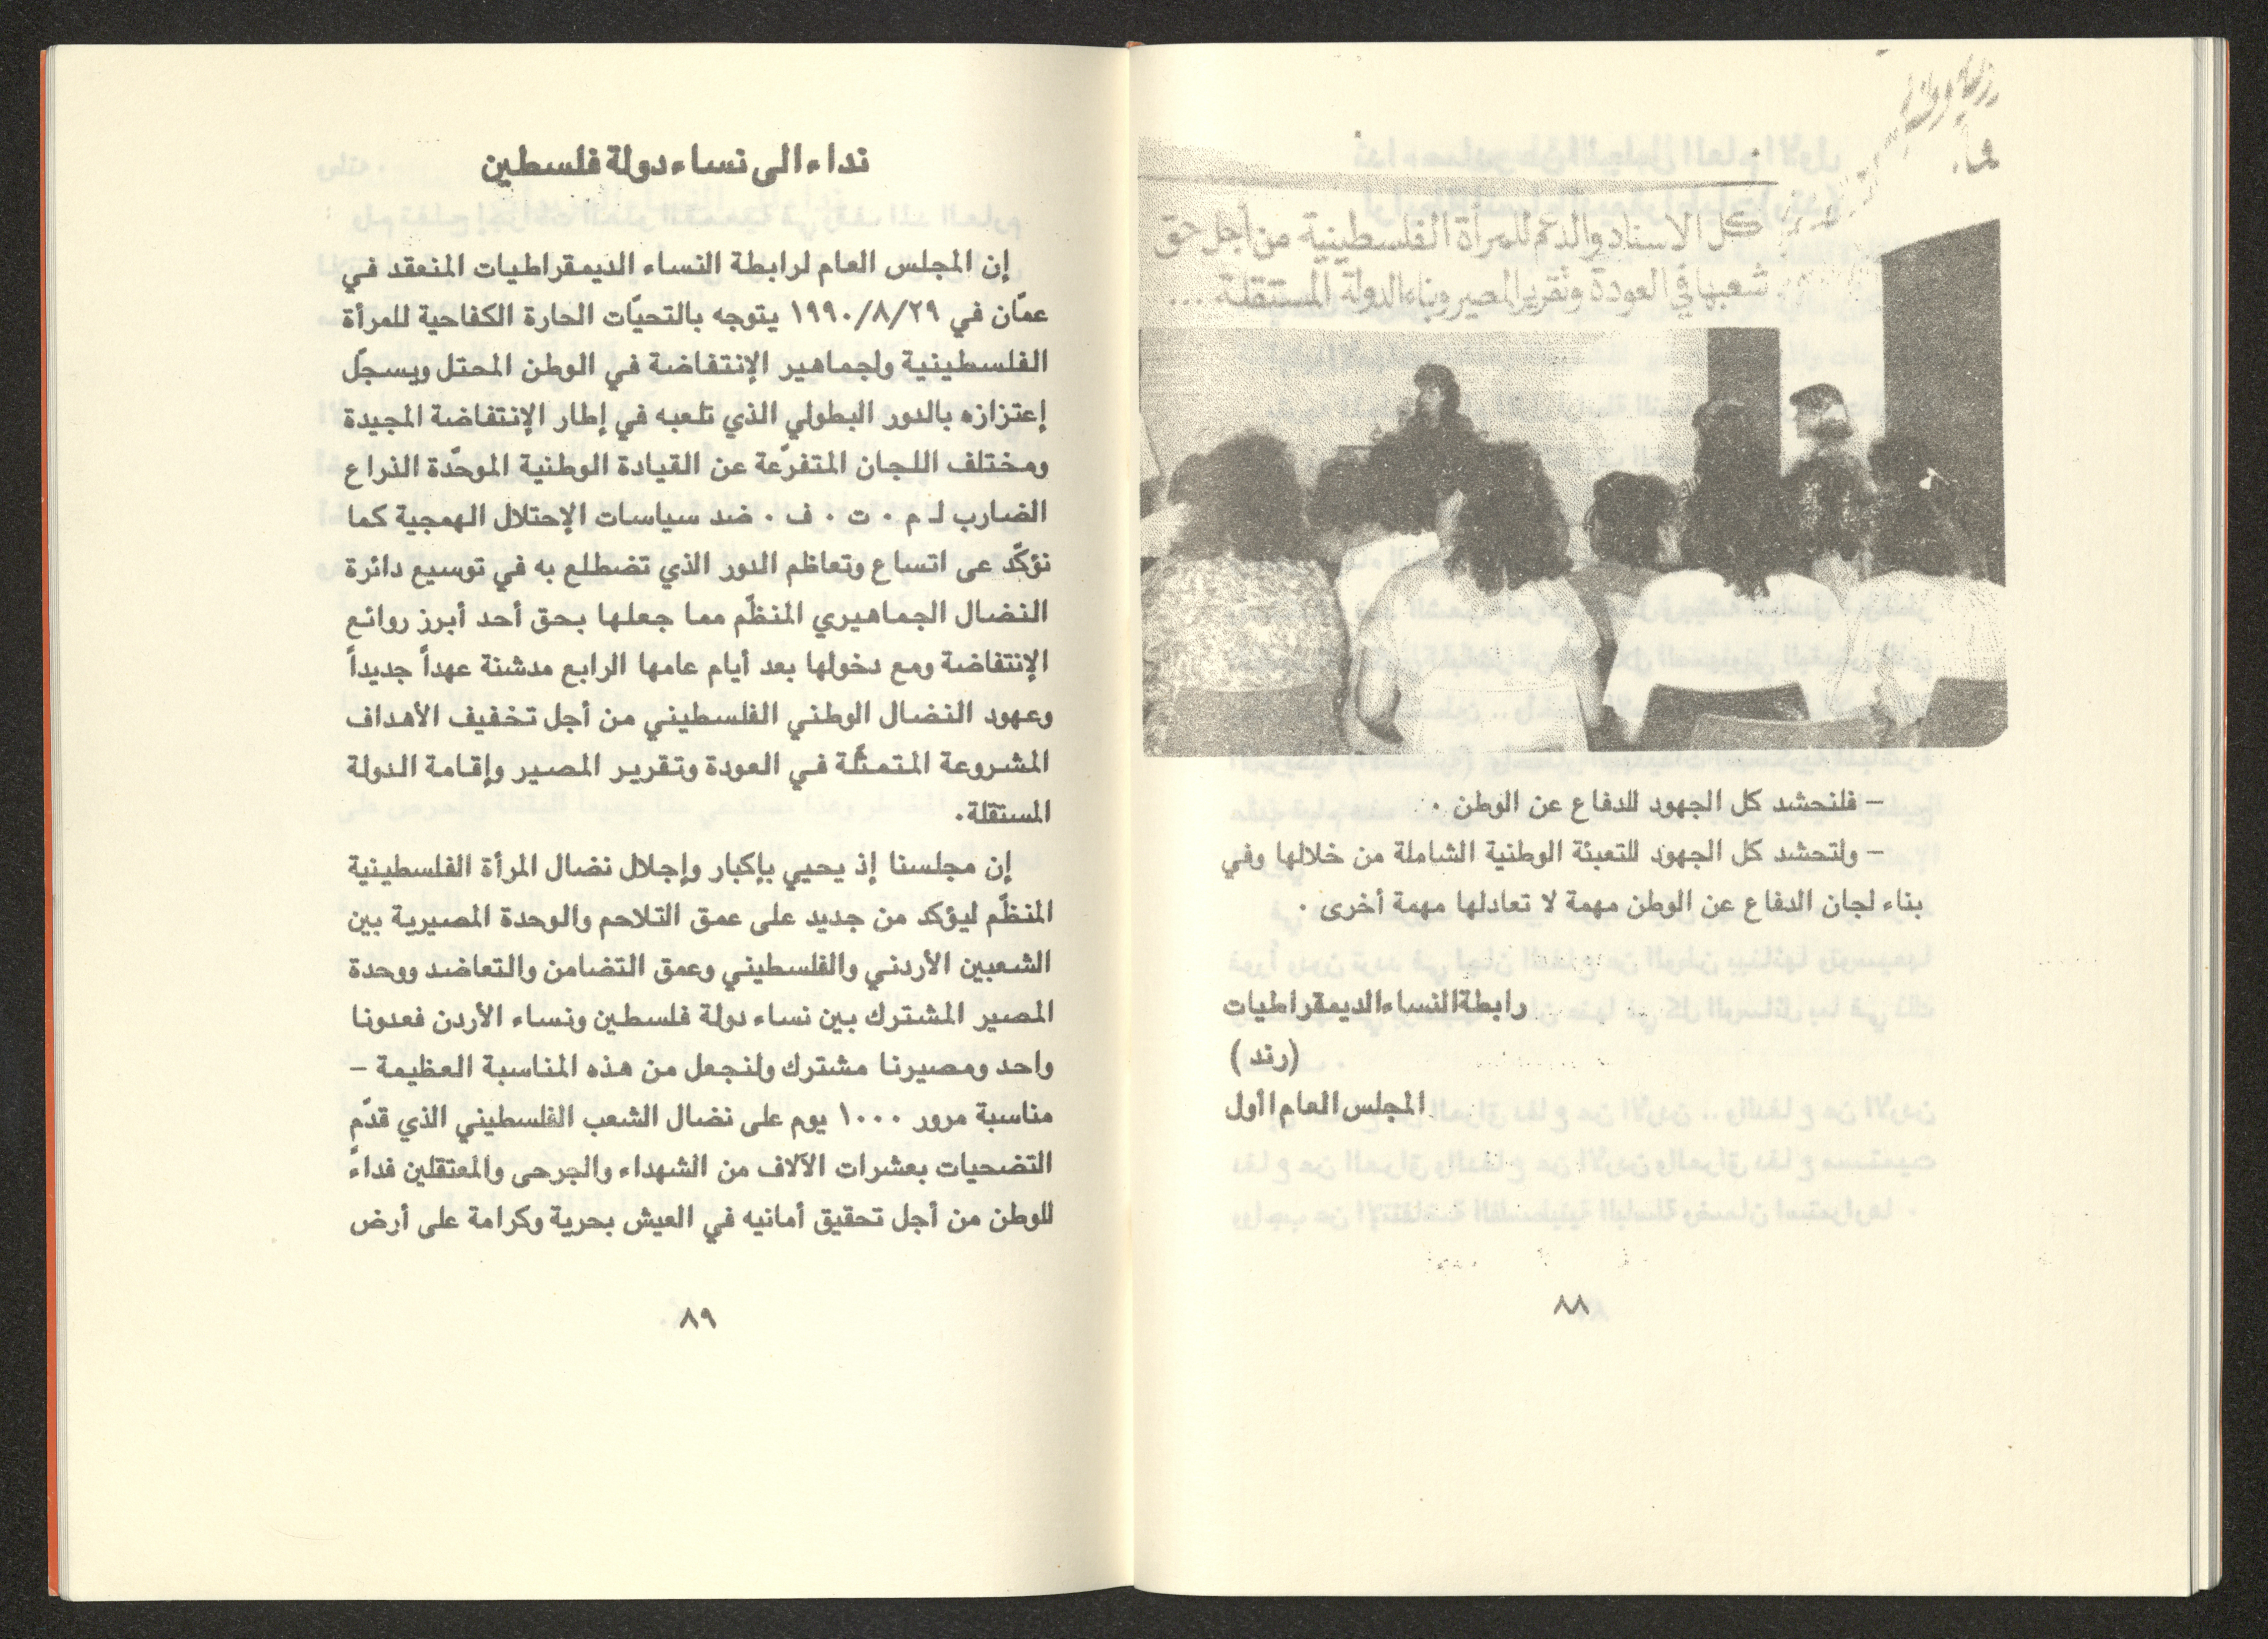 كل الاسناد والدعم للمرأة الفلسطينية من أجل حق
شعبها في العودة وتقرير المصير وبناء الدولة المستقلة ...
– فلنحشد كل الجهود للدفاع عن الوطن .
– ولتحشد كل الجهود للتعبئة الوطنية الشاملة من خلالها وفي
بناء لجان الدفاع عن الوطن مهمة لا تعادلها مهمة أخرى .
رابطة النساء الديمقراطيات
(رند)
المجلس العام الأول
٨٨
نداء الى نساء دولة فلسطين
إن المجلس العام لرابطة النساء الديمقراطيات المنعقد في
عمّان في ١٩٩٠/٨/٢٩ يتوجه بالتحيّات الحارة الكفاحية للمرأة
الفلسطينية ولجماهير الإنتفاضة في الوطن المحتل ويسجّل
إعتزازه بالدور البطولي الذي تلعبه في إطار الإنتفاضة المجيدة
ومختلف اللجان المتفرّعة عن القيادة الوطنية الموحّدة الذراع
الضارب لـ م . ت . ف . ضد سياسات الإحتلال الهمجية كما
نؤكّد عى اتساع وتعاظم الدور الذي تضطلع به في توسيع دائرة
النضال الجماهيري المنظّم مما جعلها بحق أحد أبرز روائع
الإنتفاضة ومع دخولها بعد أيام عامها الرابع مدشنة عهداً جديداً
وعهود النضال الوطني الفلسطيني من أجل تخفيف الأهداف
المشروعة المتمثّلة في العودة وتقرير المصير وإقامة الدولة
المستقلة.
إن مجلسنا إذ يحيي بإكبار وإجلال نضال المرأة الفلسطينية
المنظّم ليؤكد من جديد على عمق التلاحم والوحدة المصيرية بين
الشعبين الأردني والفلسطيني وعمق التضامن والتعاضد ووحدة
المصير المشترك بين نساء دولة فلسطين ونساء الأردن فعدونا
واحد ومصيرنا مشترك ولنجعل من هذه المناسبة العظيمة –
مناسبة مرور ١٠٠٠ يوم على نضال الشعب الفلسطيني الذي قدّم
التضحيات بعشرات الآلاف من الشهداء والجرحى والمعتقلين فداءً
للوطن من أجل تحقيق أمانيه في العيش بحرية وكرامة على أرض
٨٩